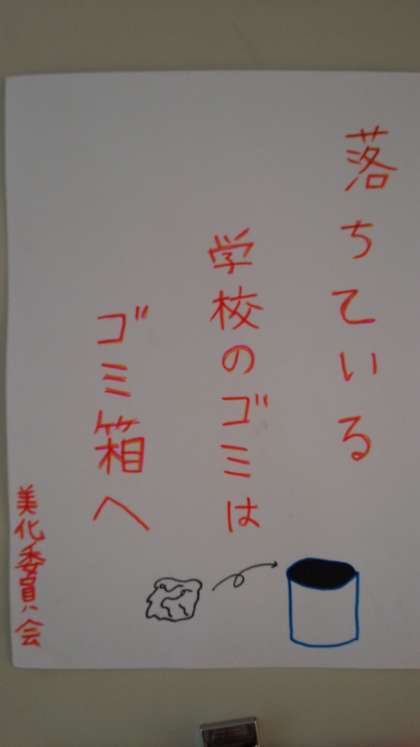 落ちている
学校のゴミは
ゴミ箱へ
美化委員会